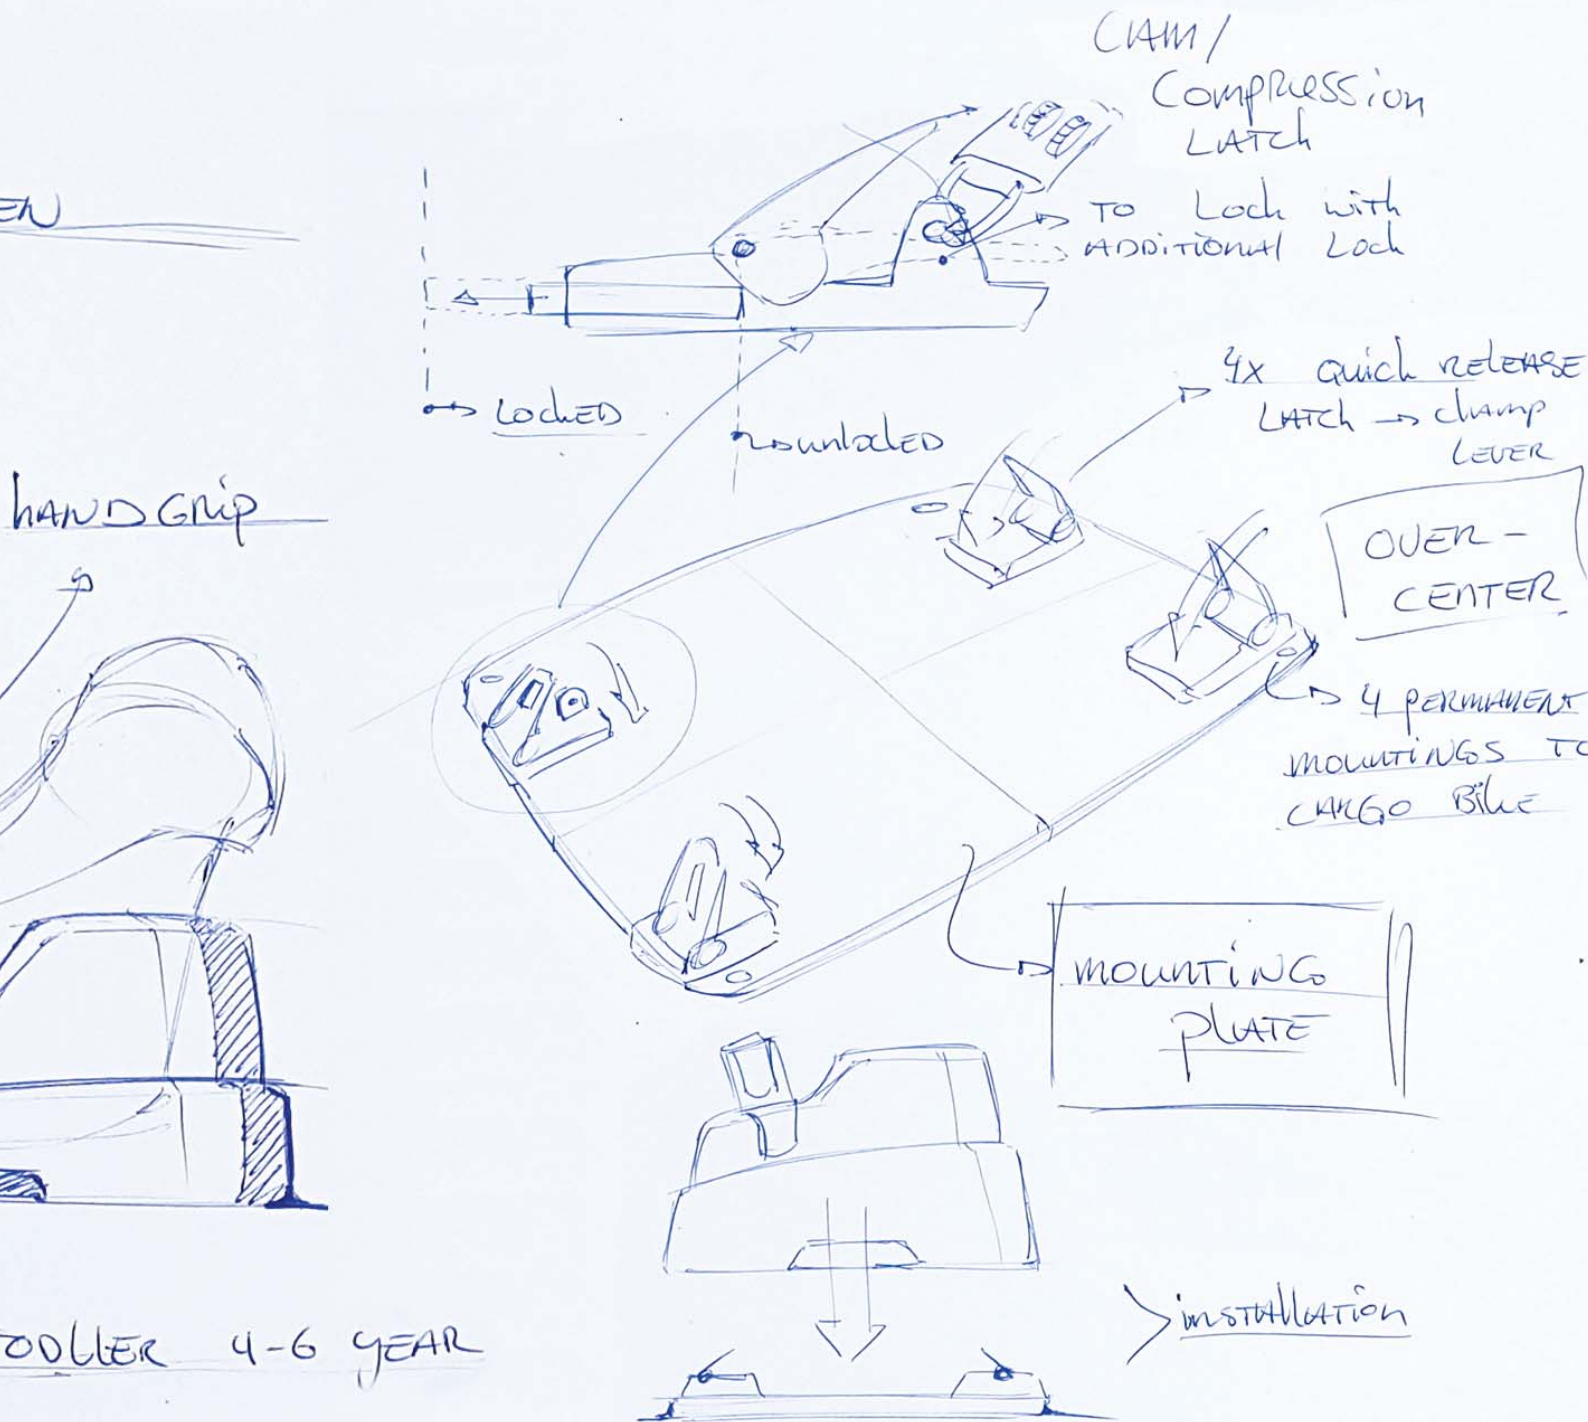 CLAM/
COMPRESSION
LATCH
TO LOCK WITH
ADDITIONAL LOCK
EN
LOCKED
UNLOCKED
4X QUICK RELEASE
LATCH → CLAMP
LEVER
HANDGRIP
OVER-
CENTER
4 PERMANENT
MOUNTINGS TO
CARGO BIKE
MOUNTING
PLATE
INSTALLATION
TODLLER 4-6 YEAR